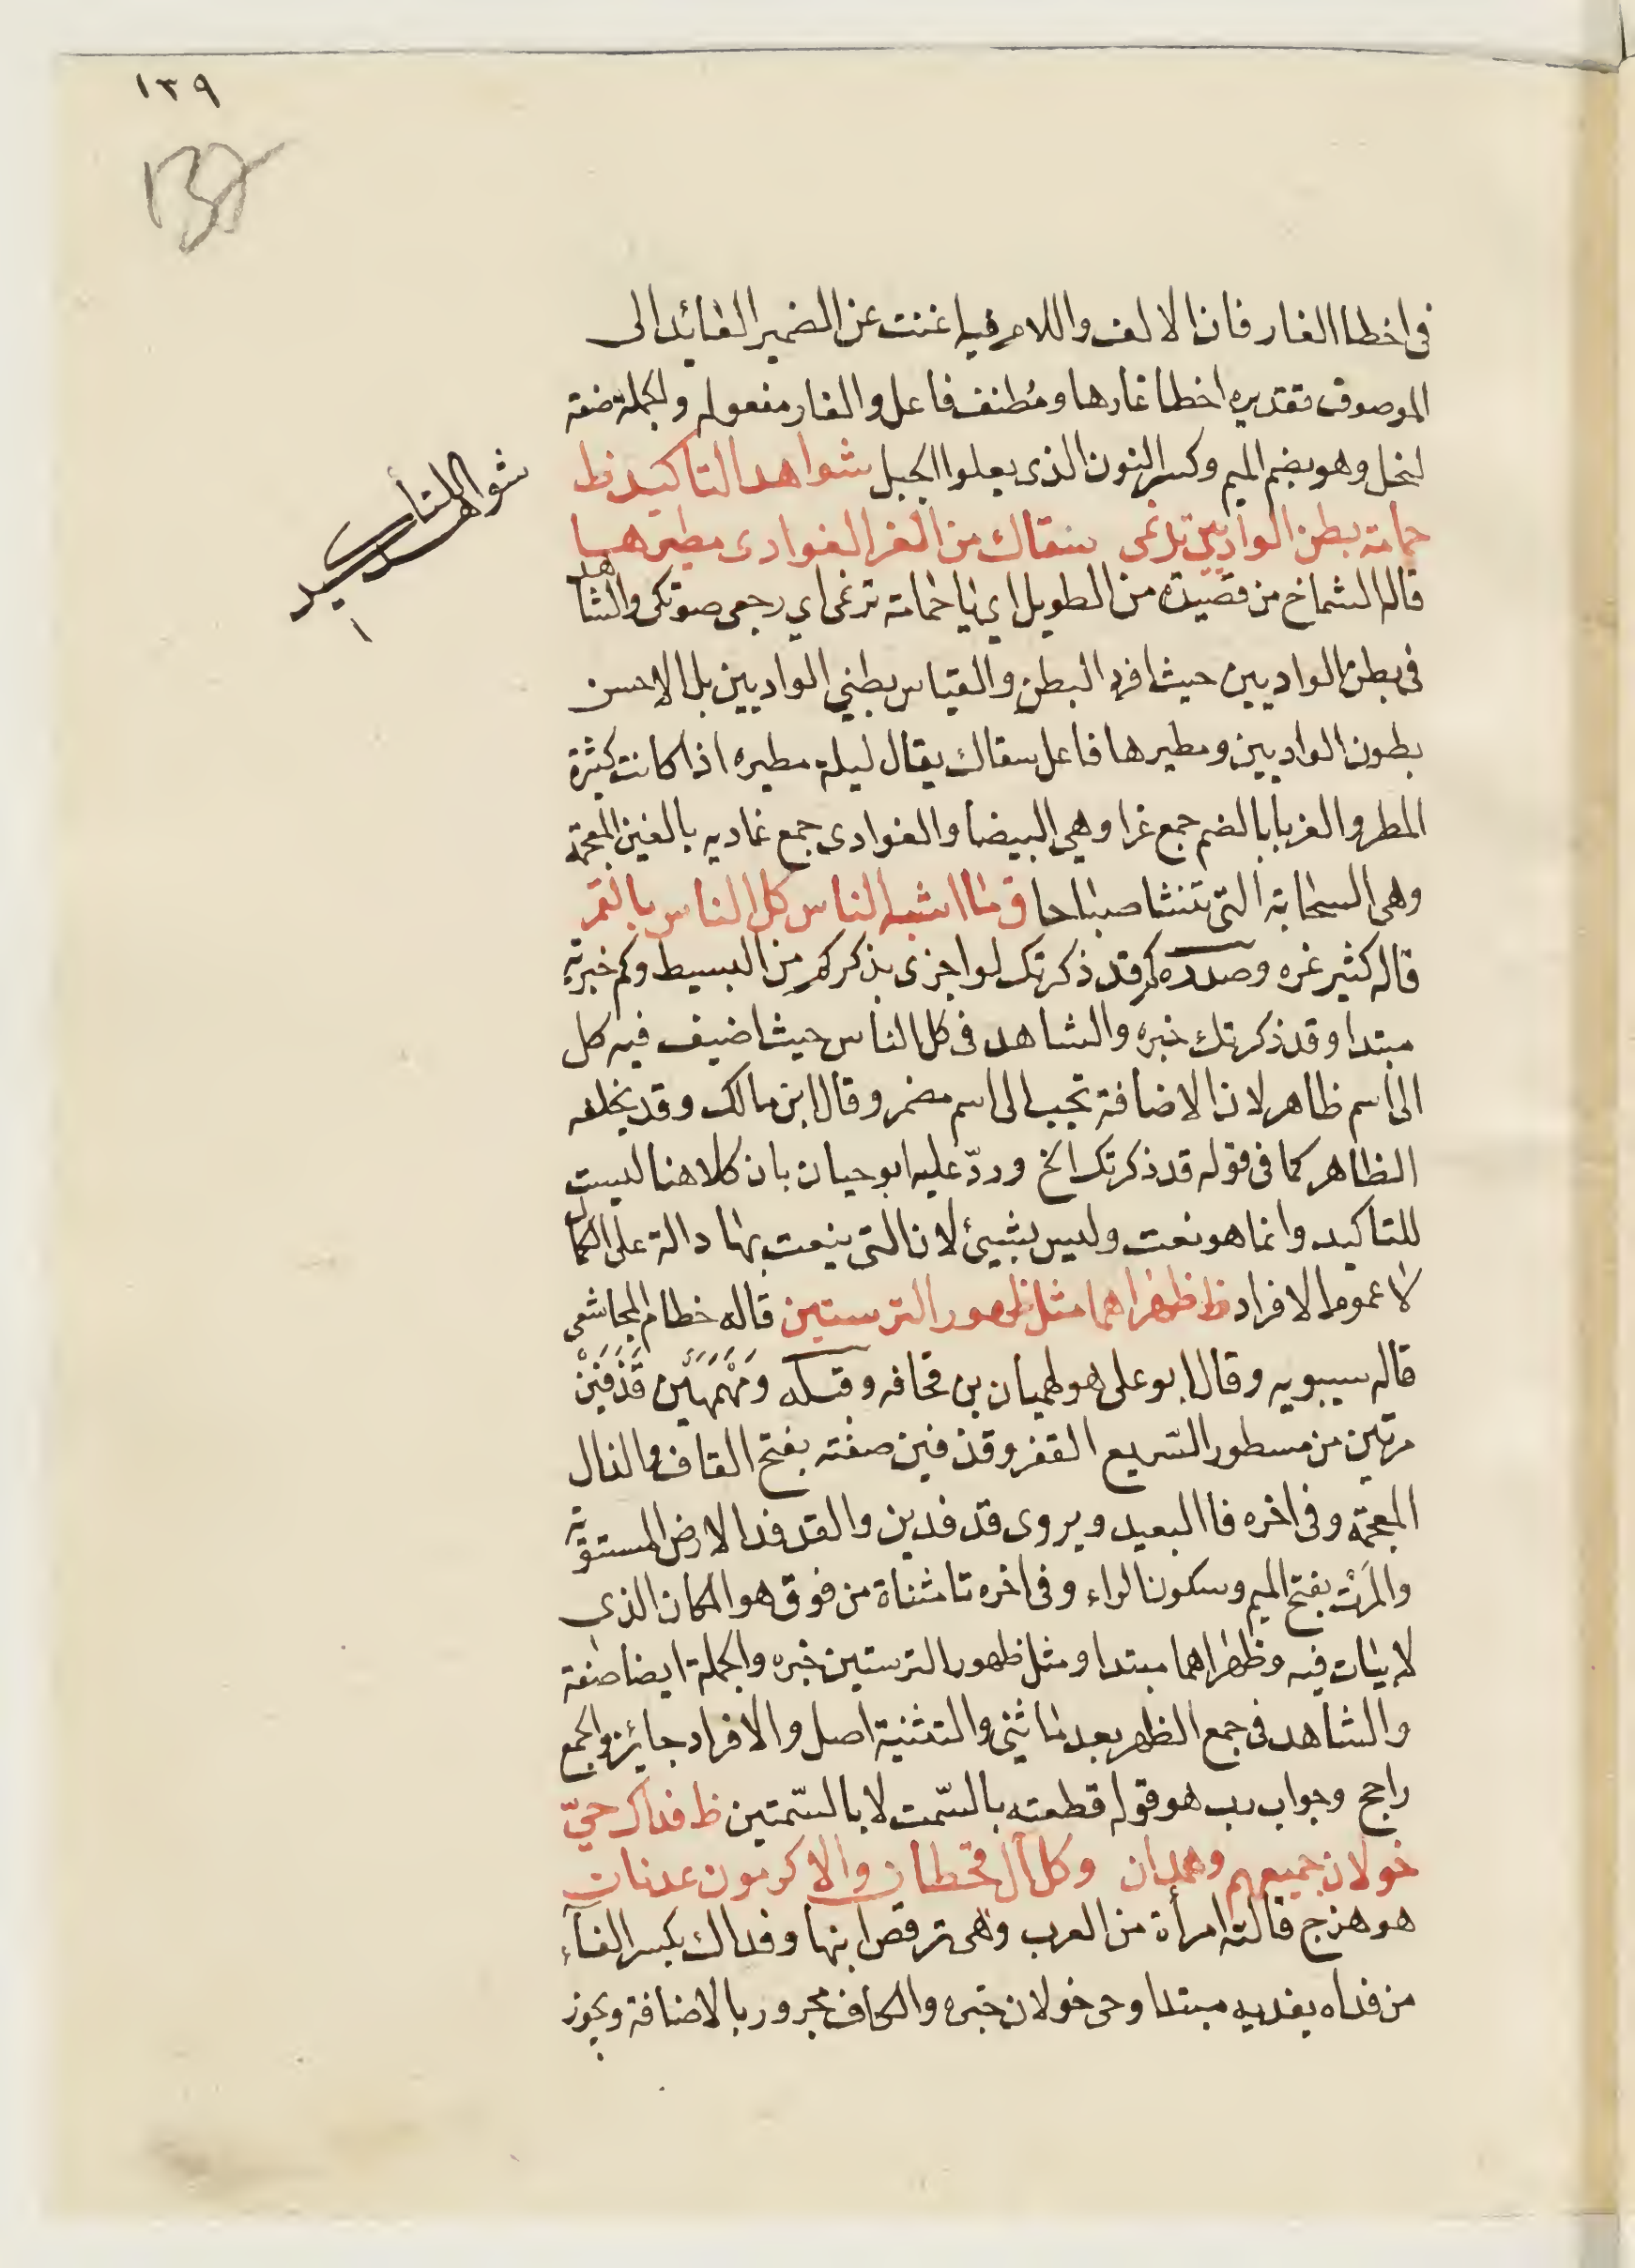 ١٣٩
137
فى اخطا الغار فان الالف واللام فيه اغنت عن الضمير العائد الى
الموصوف تقديره اخطا غارها ومُطنف فاعل والغار مفعوله والجملة صفة
لنحل وهو بضم الميم وكسر النون الذى يعلوا الجبل شواهد التاكيد ظ
حمامة بطن الواديين ترنمى سقاك من الغر الغوادى مطيرها
قاله الشماخ من قصيدة من الطويل اي يا حمامة ترنمى اي رجعى صوتكى والشاهد
فى بطن الواديين حيث افرد البطن والقياس بطني الواديين بل الاحسن
بطون الواديين ومطيرها فاعل سقاك يقال ليلة مطيره اذا كانت كثيرة
المطر والغر بابالضم جمع غرا وهي البيضا والغوادى جمع غاديه بالغين المعجمة
وهى السحابة التى تنشا صباحا ق يا اشبه الناس كل الناس بالقمر
قاله كثير عزه وصدره كم قد ذكرتك لو اجزى بذكركم من البسيط وكم خبرية
مبتدا وقد ذكرتك خبره والشاهد فى كل الناس حيث اضيف فيه كل
الى اسم ظاهر لان الاضافة تجب الى اسم مضمر وقال ابن مالك وقد يخلفه
الظاهر كما فى قوله قد ذكرتك الخ وردّ عليه ابو حيان بان كلا هنا ليست
للتاكيد وانما هو نعت وليس بشيئ لان التى ينعت بها دالة على الكمال
لا عموم الافراد ظ ظهراهما مثل ظهور الترستين قاله خطام المجاشعى
قاله سيبويه وقال ابو على هو لهميان بن قحافه وقبله وَمَهْمَهَيْن قَذَفَيْنْ
مرتين من مسطور السّريع القفر وقذفين صفته بفتح القاف والذال
المعجمة وفى اخره فا البعيد ويروى فدفدين والفدفد الارض المستوية
والمَرْت بفتح الميم وسكون الراء وفى اخره تا مثناة من فوق هو المكان الذى
لا نبات فيه وظهراهما مبتدا ومثل ظهور الترستين خبره والجملة ايضا صفة
والشاهد فى جمع الظهر بعد ما ثنى والتثنية اصل والافراد جائز والجمع
راجح وجواب رب هو قوله قطعته بالسّمت لا بالسّمتين ظ فداك حيّ
خولان جميعهم وهمدان وكل آل قحطان والاكرمون عدنان
هو هزج قالته امرأة من العرب وهى ترقص ابنها وفداك بكسر الفاء
من فداه يفديه مبتدا وحى خولان خبره والكاف مجرور بالاضافة ويجوز
شواهد التأكيد